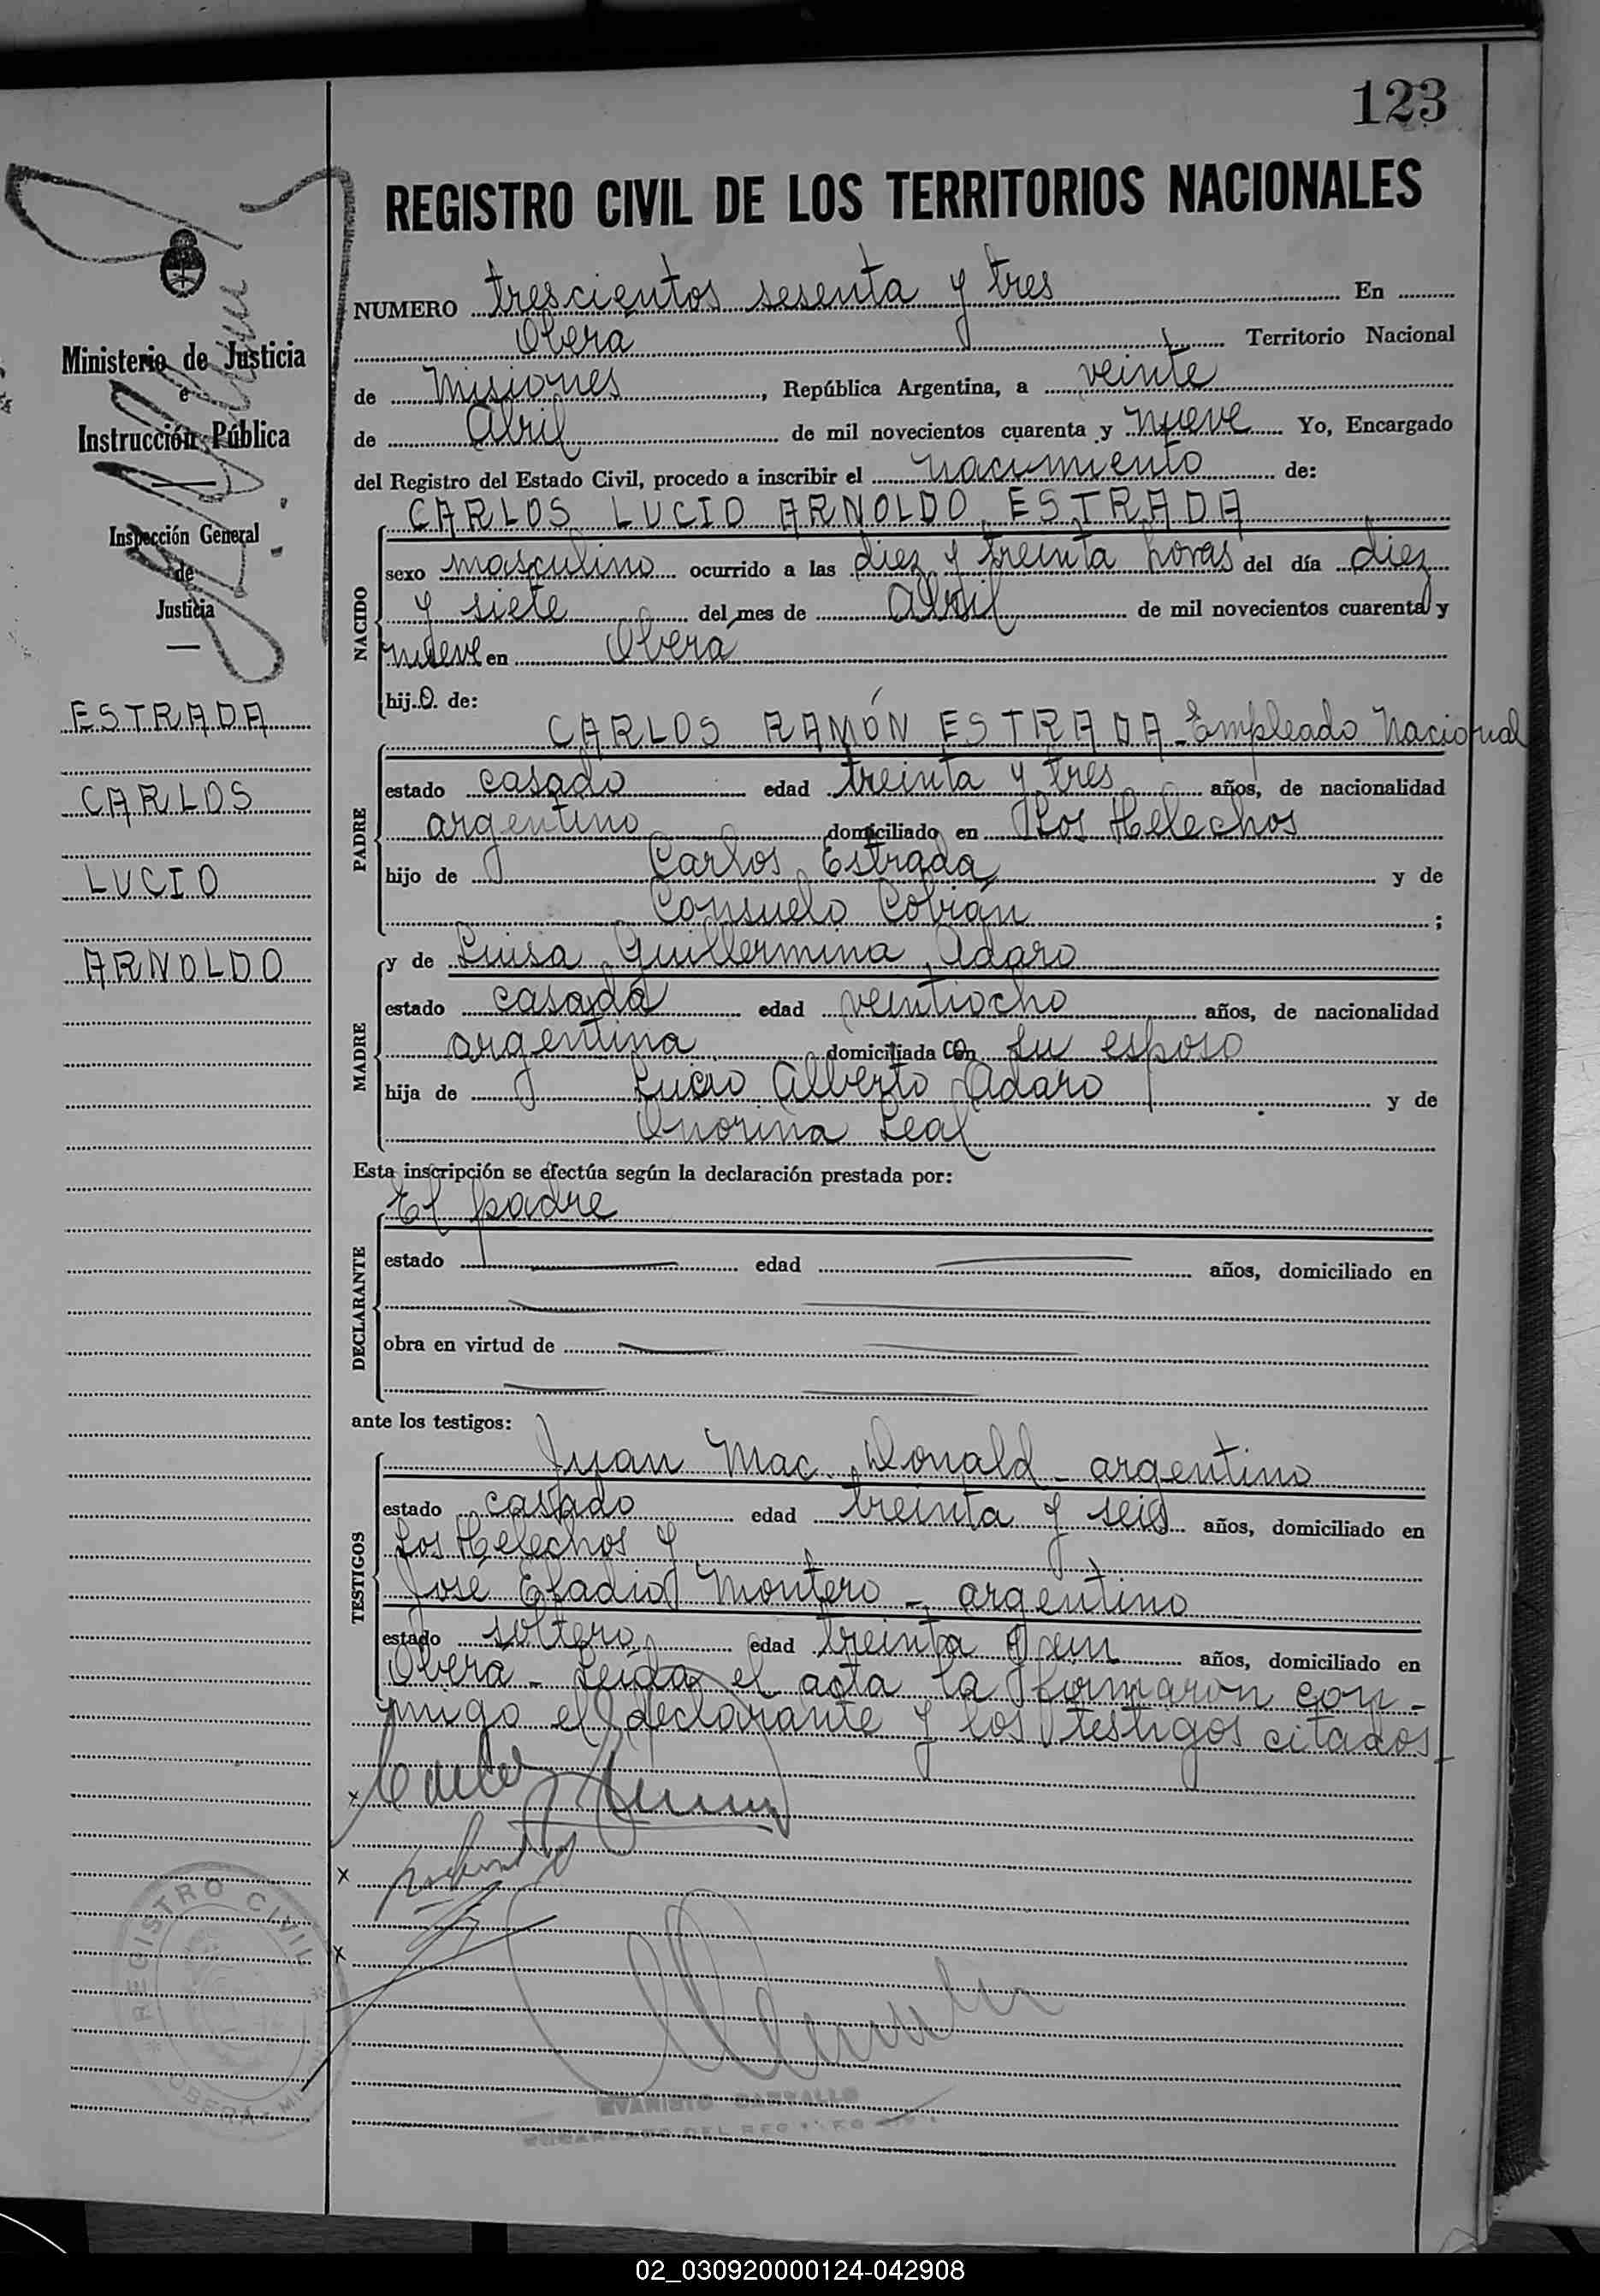 123
REGISTRO CIVIL DE LOS TERRITORIOS NACIONALES
Ministerio de Justicia
e
Instrucción Pública
Inspección General
de
Justicia
ESTRADA
CARLOS
LUCIO
ARNOLDO
NUMERO trescientos sesenta y tres En
Oberá Territorio Nacional
de Misiones, República Argentina, a veinte
de Abril de mil novecientos cuarenta y nueve Yo, Encargado
del Registro del Estado Civil, procedo a inscribir el nacimiento de:
NACIDO
CARLOS LUCIO ARNOLDO ESTRADA
sexo masculino ocurrido a las diez y treinta horas del día diez
y siete del mes de Abril de mil novecientos cuarenta y
nueve en Oberá
hijo de:
PADRE
CARLOS RAMÓN ESTRADA - Empleado Nacional
estado casado edad treinta y tres años, de nacionalidad
argentino domiciliado en Los Helechos
hijo de Carlos Estrada y de
Consuelo Cobián ;
MADRE
y de Luisa Guillermina Adaro
estado casada edad veintiocho años, de nacionalidad
argentina domiciliada con su esposo
hija de Lucio Alberto Adaro y de
Onorina Leal
Esta inscripción se efectúa según la declaración prestada por:
DECLARANTE
El padre
estado edad años, domiciliado en
obra en virtud de
ante los testigos:
TESTIGOS
Juan Mac Donald - argentino
estado casado edad treinta y seis años, domiciliado en
Los Helechos y
José Eladio Montero - argentino
estado soltero edad treinta y un años, domiciliado en
Oberá - Leída el acta la firmaron con-
migo el declarante y los testigos citados
REGISTRO CIVIL
OBERA
EVARISTO CARVALLO
ENCARGADO DEL REGISTRO CIVIL
02_030920000124-042908